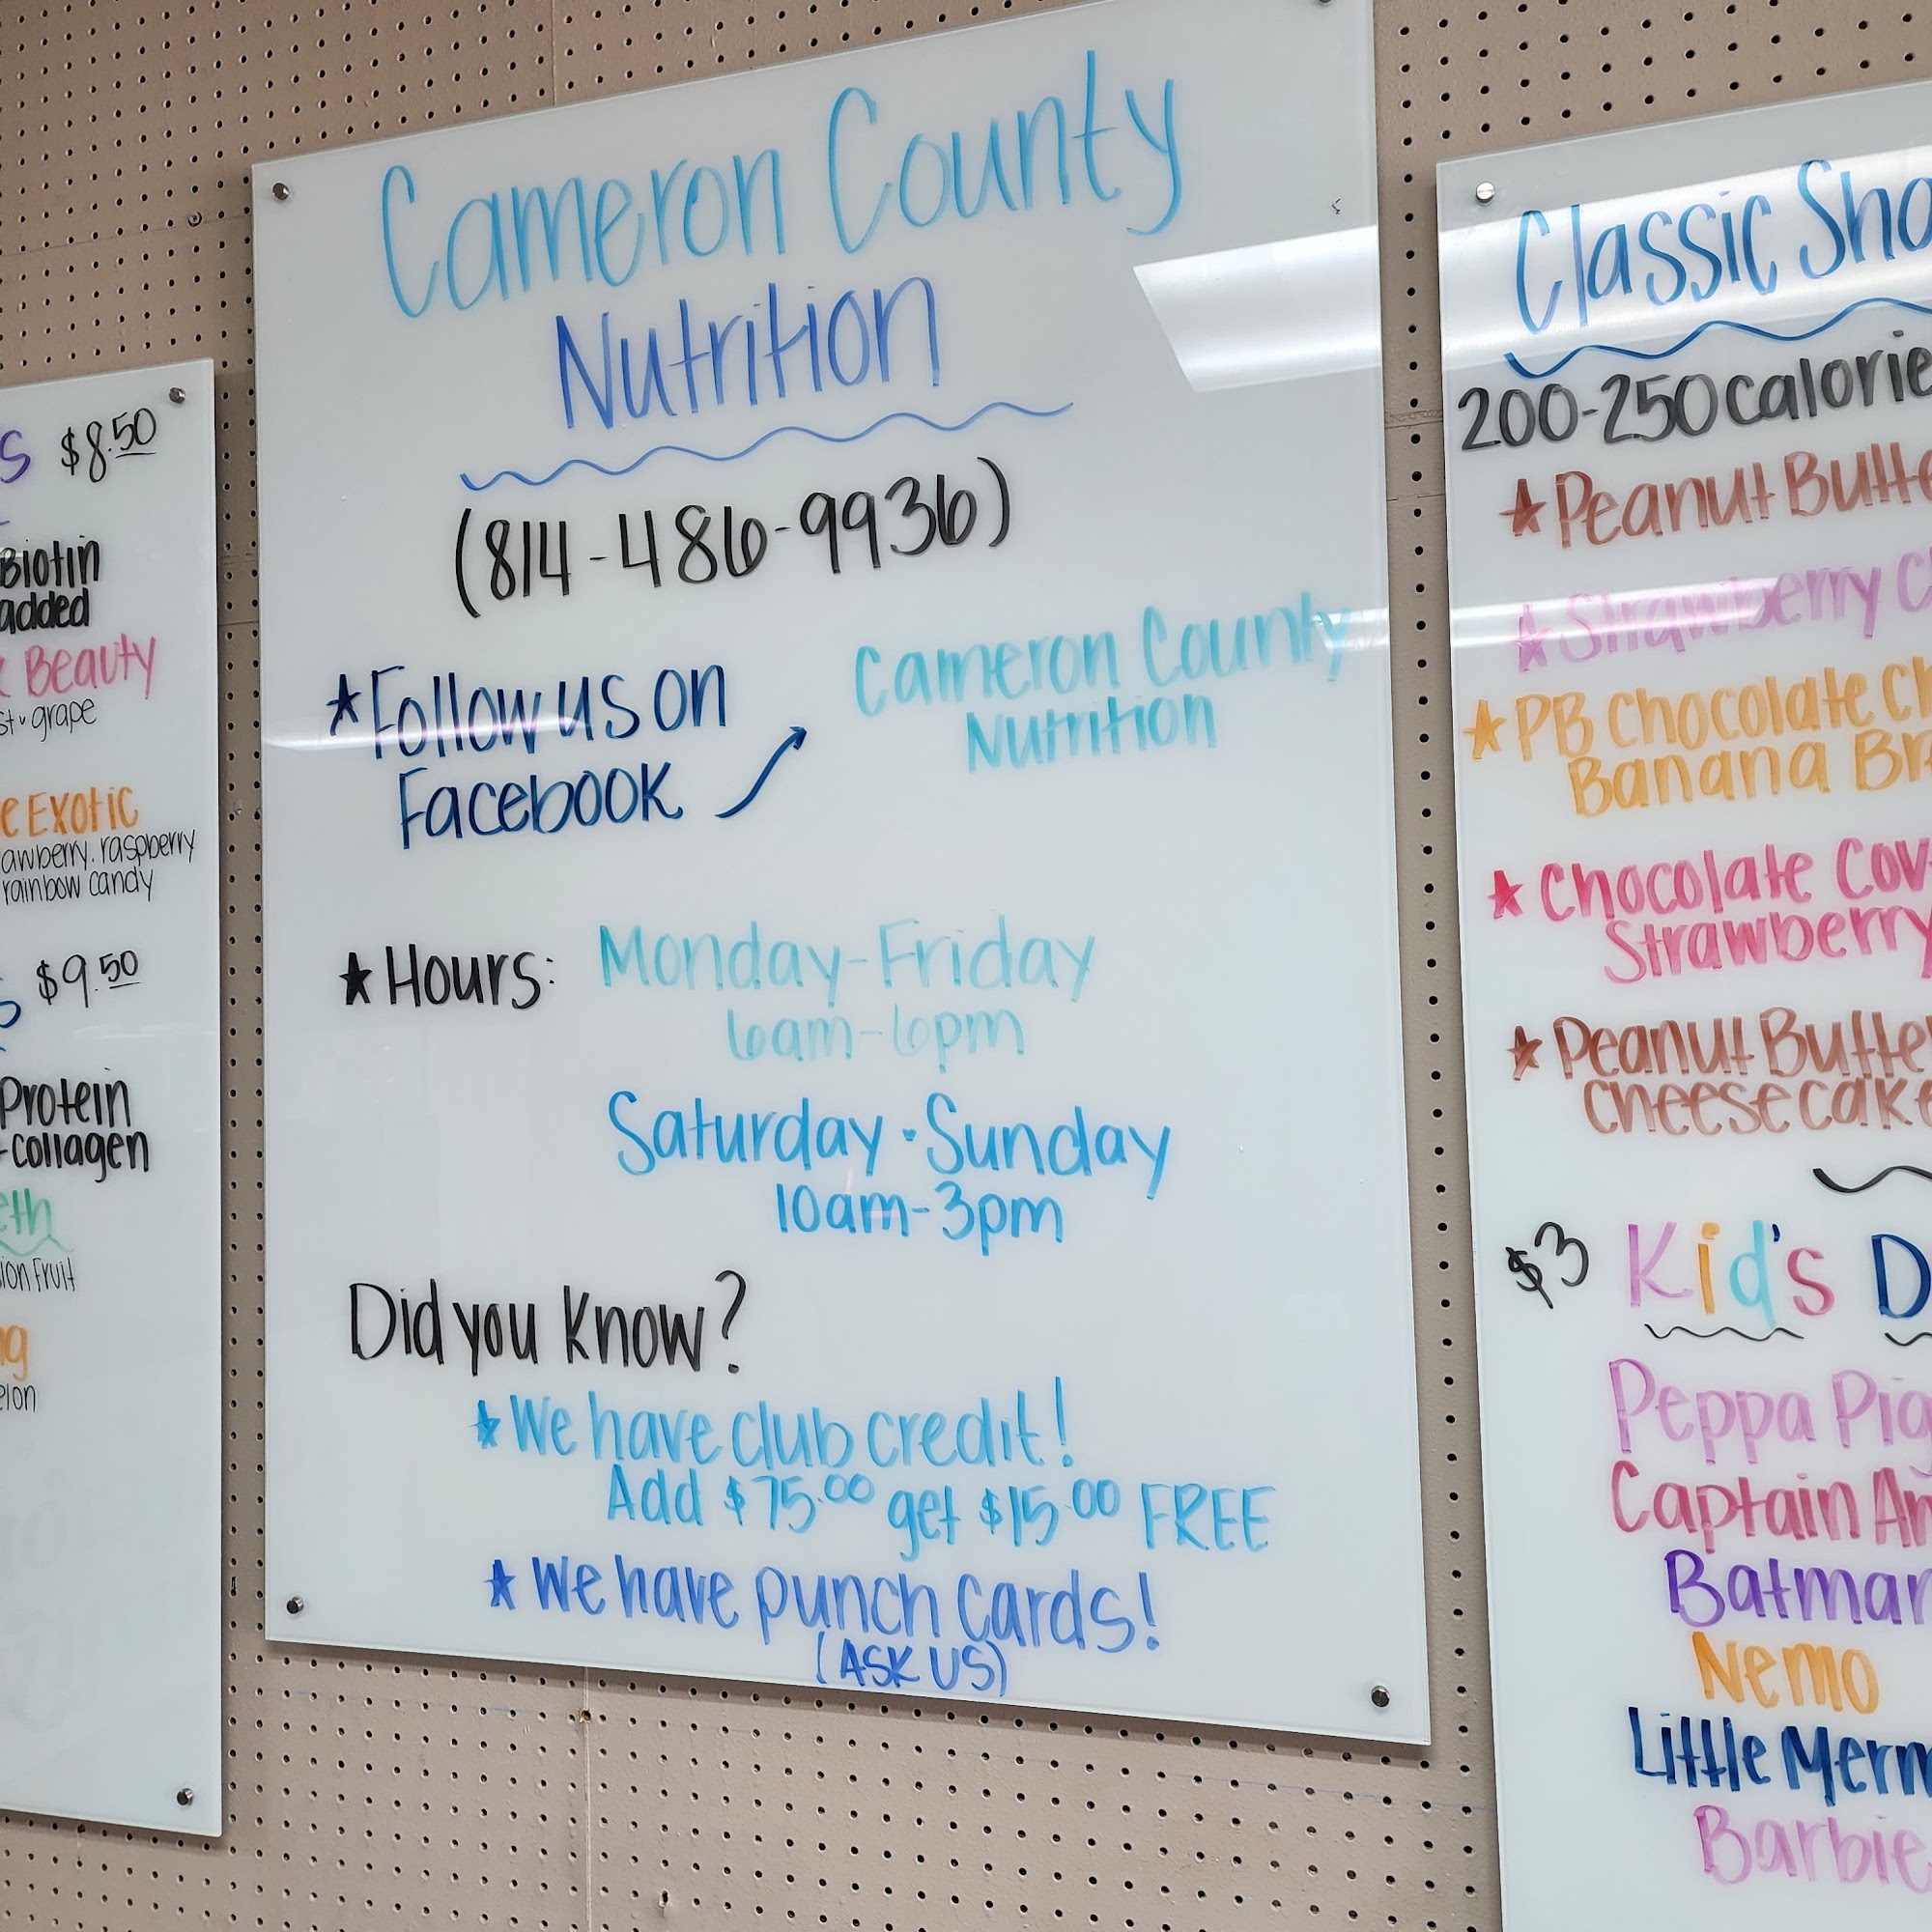 $8.50
Biotin
added
Beauty
grape
Exotic
raspberry
rainbow candy
$9.50
Protein
+collagen
Fruit
Cameron County
Nutrition
(814-486-9936)
★Follow us on
Facebook
Cameron County
Nutrition
★Hours: Monday-Friday
6am-6pm
Saturday-Sunday
10am-3pm
Did you know?
★We have club credit!
Add $75.00 get $15.00 FREE
★We have punch cards!
(ASK US)
Classic
200-250 calorie
★Peanut Butte
★Strawberry C
★PB Chocolate Ch
Banana Br
★Chocolate Cov
Strawberry
★Peanut Butte
Cheesecake
$3 Kid's D
Peppa Pig
Captain Am
Batman
Nemo
Little Merm
Barbie